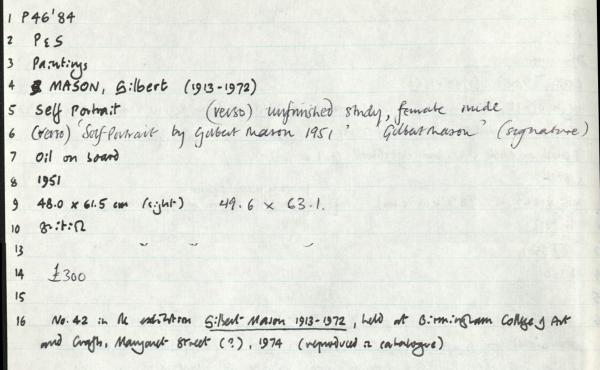 1 P46'84
2 P&S
3 Paintings
4 MASON, Gilbert (1913-1972)
5 Self Portrait (verso) unfinished study, female nude
6 (verso) 'Self Portrait by Gilbert Mason 1951' 'Gilbert Mason' (signature)
7 Oil on board
8 1951
9 48.0 x 61.5 cm (sight) 49.6 x 63.1.
10 British
13
14 £300
15
16 No. 42 in the exhibition Gilbert Mason 1913-1972, held at Birmingham College of Art
and Crafts, Margaret Street (?), 1974 (reproduced in catalogue)